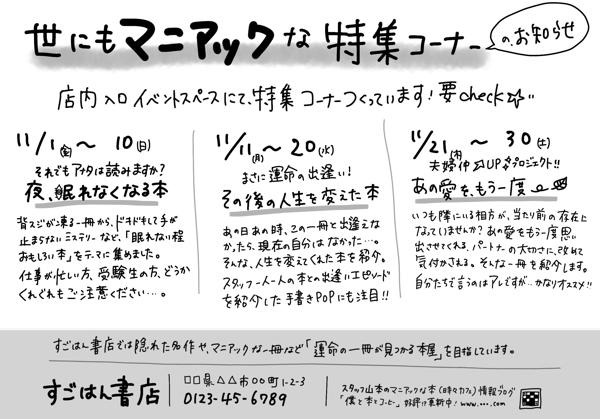 世にもマニアックな特集コーナー
の、お知らせ
店内入口イベントスペースにて、特集コーナーつくっています!要check☆
11/1(金)〜10(日)
それでもアナタは読みますか?
夜、眠れなくなる本
背スジが凍る一冊から、ドキドキして手が
止まらないミステリーなど、「眠れない程
おもしろい本」をテーマに集めました。
仕事が忙しい方、受験生の方、どうか
くれぐれもご注意ください…。
11/11(月)〜20(水)
まさに運命の出逢い!
その後の人生を変えた本
あの日あの時、この一冊と出逢えな
かったら、現在の自分はなかった…。
そんな、人生を変えてくれた本を紹介。
スタッフ一人一人の本との出逢いエピソード
を紹介した手書きPOPにも注目!!
11/21(木)〜30(土)
夫婦仲UPプロジェクト!!
あの愛を、もう一度
いつも隣にいる相方が、当たり前の存在に
なっていませんか?あの愛をもう一度思い
出させてくれる、パートナーの大切さに、改めて
気付かされる。そんな一冊を紹介します。
自分たちで言うのはアレですが…かなりオススメ!!
すごはん書店では隠れた名作や、マニアックな一冊など「運命の一冊が見つかる本屋」を目指しています。
すごはん書店
□□県△△市○○町1-2-3
0123-45-6789
スタッフ山本のマニアックな本(時々カフェ)情報ブログ
「僕と本とコーヒー」好評更新中!www.….com